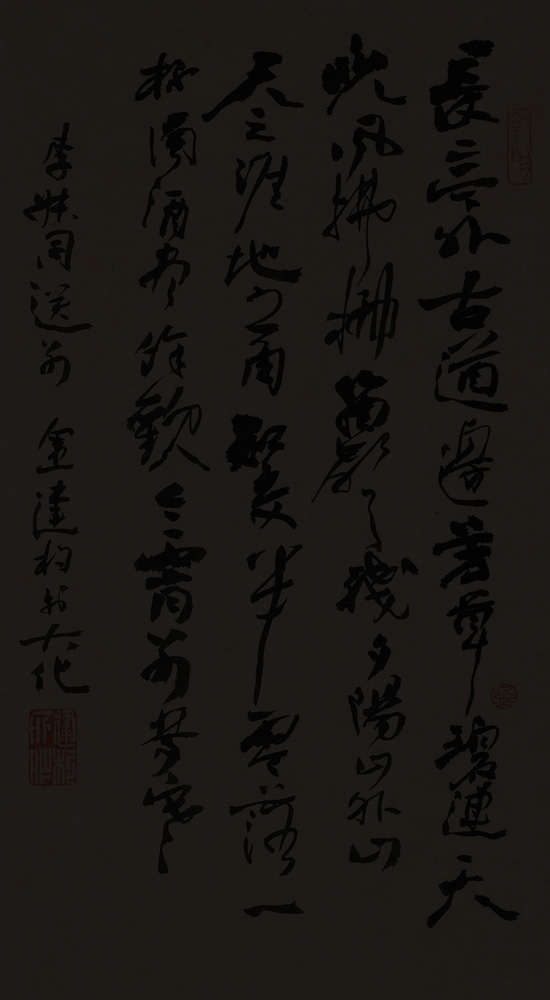 長亭外古道邊芳草碧連天
晚风拂柳笛聲殘夕陽山外山
天之涯地之角知交半零落一
杯濁酒尽餘歡今宵別夢寒
李叔同送別 金達